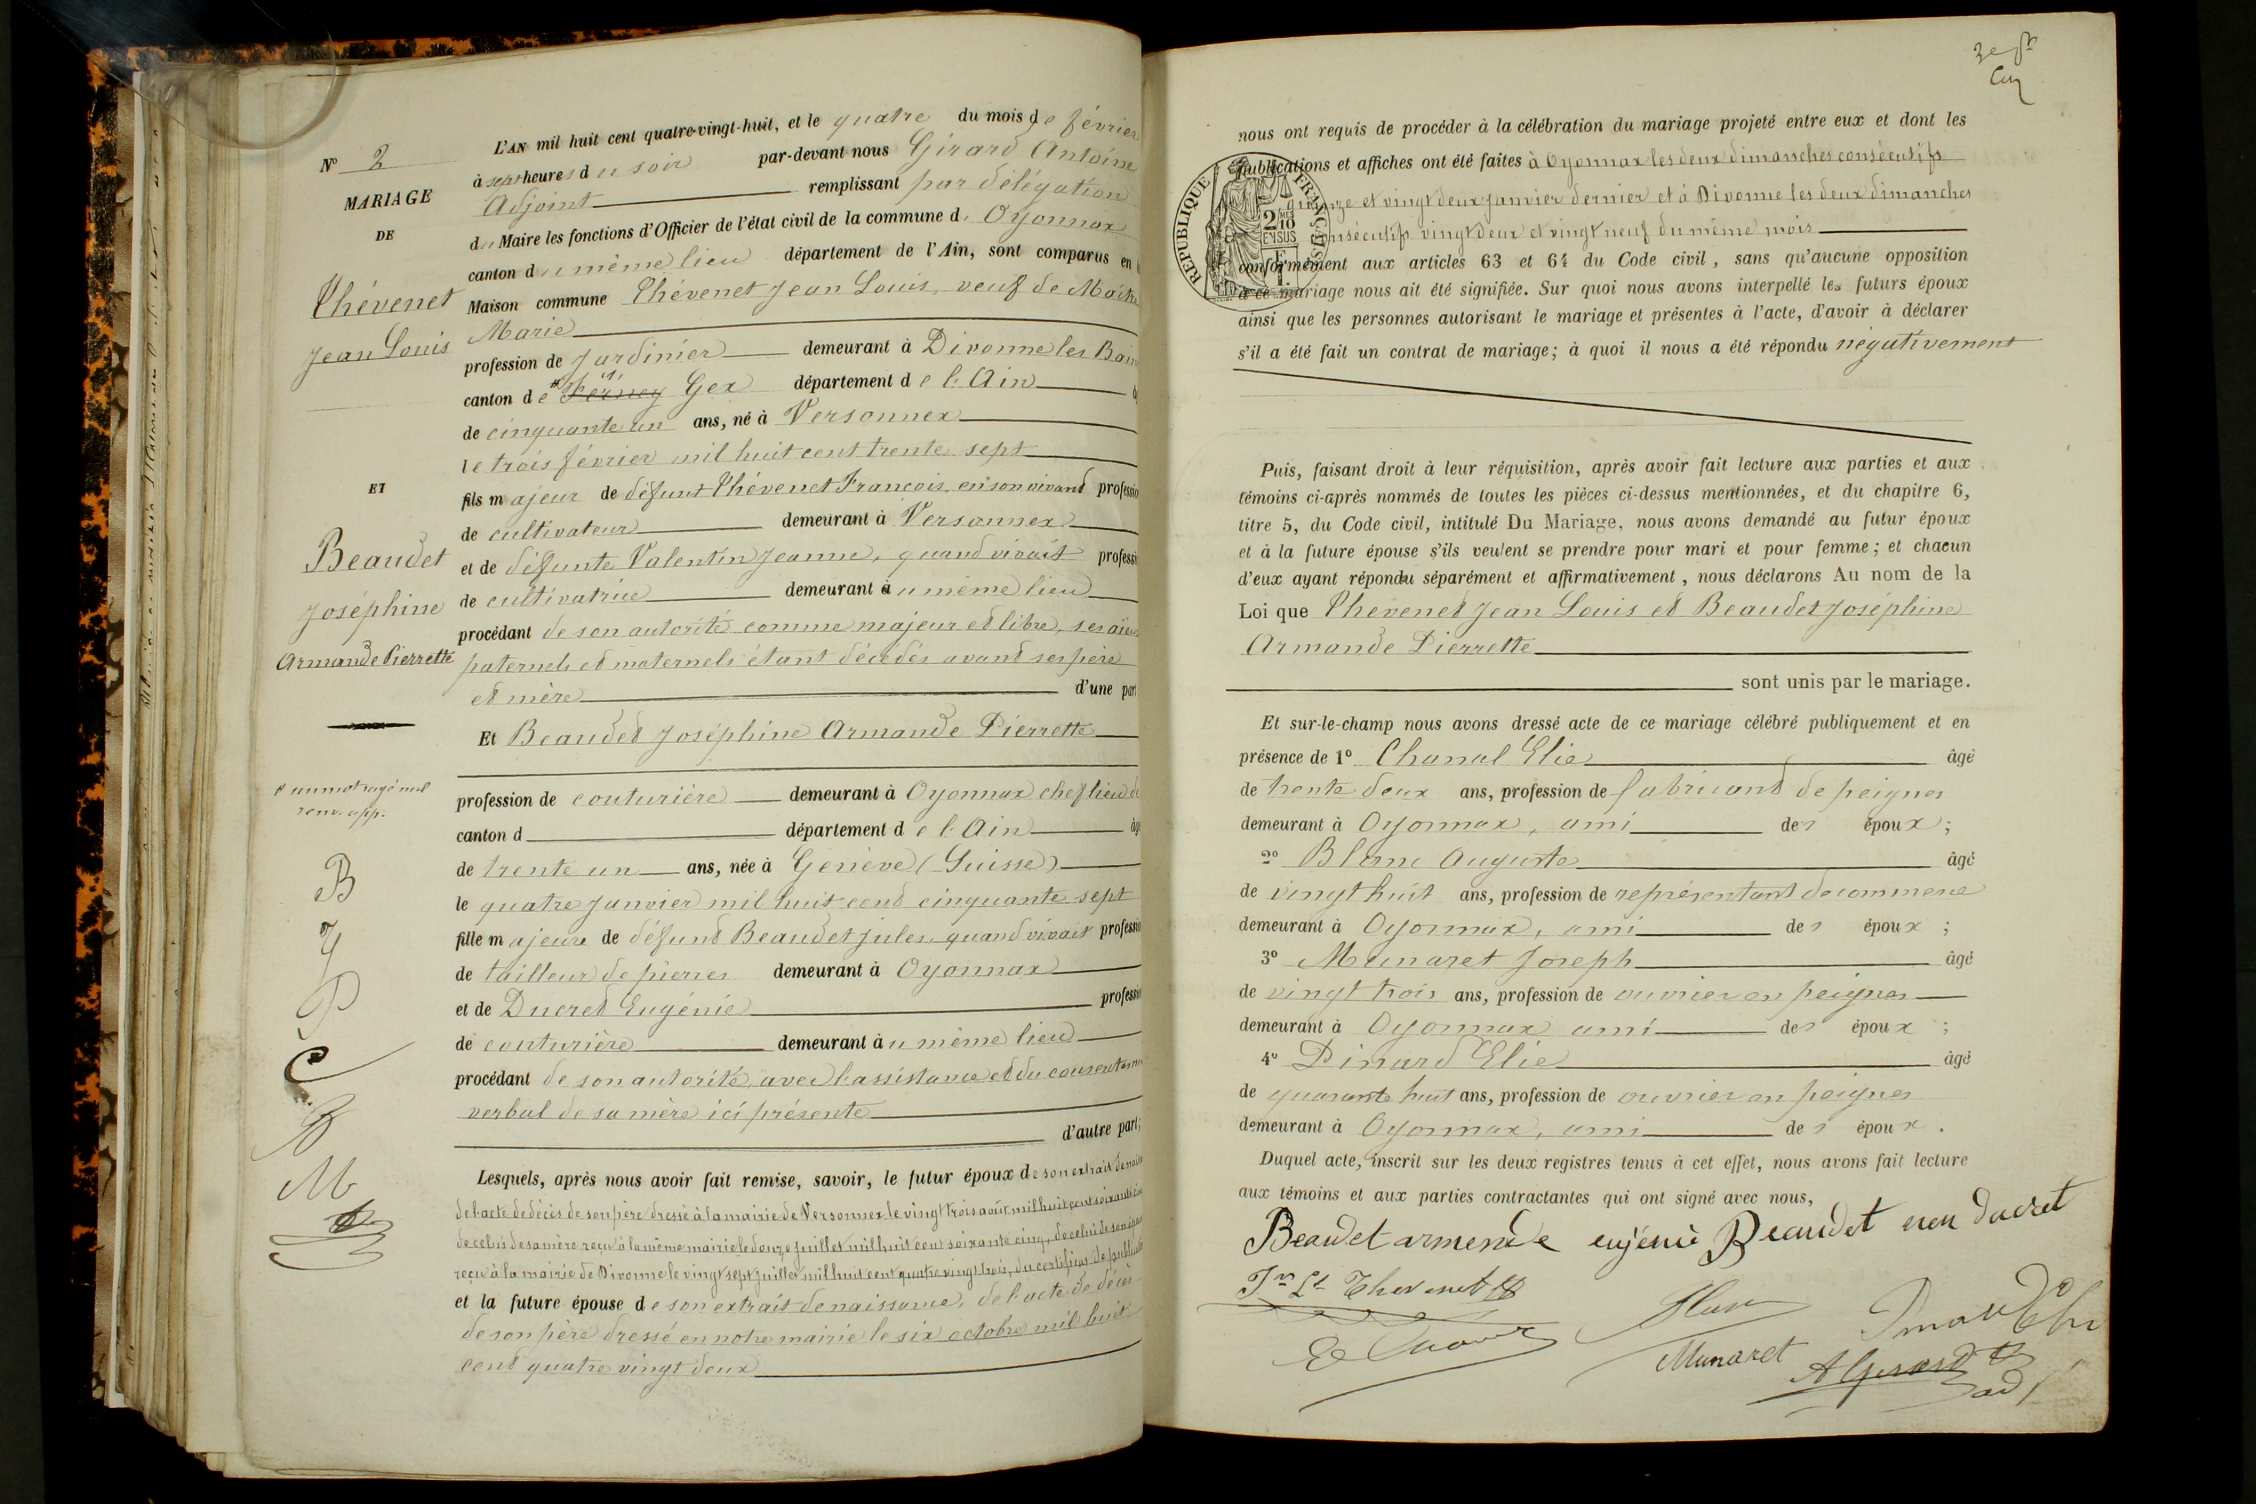 N° 2
MARIAGE
DE
Thévenet
Jean Louis
ET
Beaudet
Joséphine
Armande Pierrette
un mot rayé nul
renv. app.
B
J
P
C
B
M
L'AN mil huit cent quatre-vingt-huit, et le quatre du mois de février
à sept heures du soir par-devant nous Girard Antoine
Adjoint remplissant par délégation
du Maire les fonctions d'Officier de l'état civil de la commune d' Oyonnax
canton du même lieu département de l'Ain, sont comparus en
Maison commune Thévenet Jean Louis, veuf de
Marie
profession de Jardinier demeurant à Divonne les Bains
canton de Ferney Gex département de l'Ain
de cinquante un ans, né à Versonnex
le trois février mil huit cent trente sept
fils majeur de défunt Thévenet François, en son vivant profession
de cultivateur demeurant à Versonnex
et de défunte Valentin Jeanne, quand vivait profession
de cultivatrice demeurant au même lieu
procédant de son autorité comme majeur et libre, ses aïeux
paternels et maternels étant décédés avant ses père
et mère d'une part
Et Beaudet Joséphine Armande Pierrette
profession de couturière demeurant à Oyonnax chef lieu de
canton d département de l'Ain âgé
de trente un ans, née à Genève (Suisse)
le quatre janvier mil huit cent cinquante sept
fille majeure de défunt Beaudet Jules, quand vivait profession
de tailleur de pierres demeurant à Oyonnax
et de Ducret Eugénie profession
de couturière demeurant au même lieu
procédant de son autorité avec l'assistance et du consentement
verbal de sa mère ici présente
d'autre part;
Lesquels, après nous avoir fait remise, savoir, le futur époux de son extrait de naissance
de l'acte de décès de son père dressé à la mairie de Versonnex le vingt trois août mil huit cent soixante
de celui de sa mère reçu à la même mairie le douze juillet mil huit cent soixante cinq, de celui de
reçu à la mairie de Divonne le vingt sept juillet mil huit cent quatre vingt trois, du certificat de publication
et la future épouse de son extrait de naissance, de l'acte de décès
de son père dressé en notre mairie le six octobre mil huit
cent quatre vingt deux
nous ont requis de procéder à la célébration du mariage projeté entre eux et dont les
publications et affiches ont été faites à Oyonnax les deux dimanches consécutifs
quinze et vingt deux janvier dernier et à Divonne les deux dimanches
consécutifs vingt deux et vingt neuf du même mois
REPUBLIQUE FRANÇAISE
2 MES 10
EN SUS
conformément aux articles 63 et 64 du Code civil, sans qu'aucune opposition
à ce mariage nous ait été signifiée. Sur quoi nous avons interpellé les futurs époux
ainsi que les personnes autorisant le mariage et présentes à l'acte, d'avoir à déclarer
s'il a été fait un contrat de mariage; à quoi il nous a été répondu négativement
Puis, faisant droit à leur réquisition, après avoir fait lecture aux parties et aux
témoins ci-après nommés de toutes les pièces ci-dessus mentionnées, et du chapitre 6,
titre 5, du Code civil, intitulé Du Mariage, nous avons demandé au futur époux
et à la future épouse s'ils veulent se prendre pour mari et pour femme; et chacun
d'eux ayant répondu séparément et affirmativement, nous déclarons Au nom de la
Loi que Thévenet Jean Louis et Beaudet Joséphine
Armande Pierrette
sont unis par le mariage.
Et sur-le-champ nous avons dressé acte de ce mariage célébré publiquement et en
présence de 1° Chanal Elie âgé
de trente deux ans, profession de fabricant de peignes
demeurant à Oyonnax, ami des époux;
2° Blanc Auguste âgé
de vingt huit ans, profession de représentant de commerce
demeurant à Oyonnax, ami des époux;
3° Munaret Joseph âgé
de vingt trois ans, profession de ouvrier en peignes
demeurant à Oyonnax ami des époux;
4° Pinard Elie âgé
de quarante huit ans, profession de ouvrier en peignes
demeurant à Oyonnax, ami des époux.
Duquel acte, inscrit sur les deux registres tenus à cet effet, nous avons fait lecture
aux témoins et aux parties contractantes qui ont signé avec nous,
Beaudet armende eujenie Beaudet neu ducret
Jn Ls Thevenet
Munaret
A Girard
adj